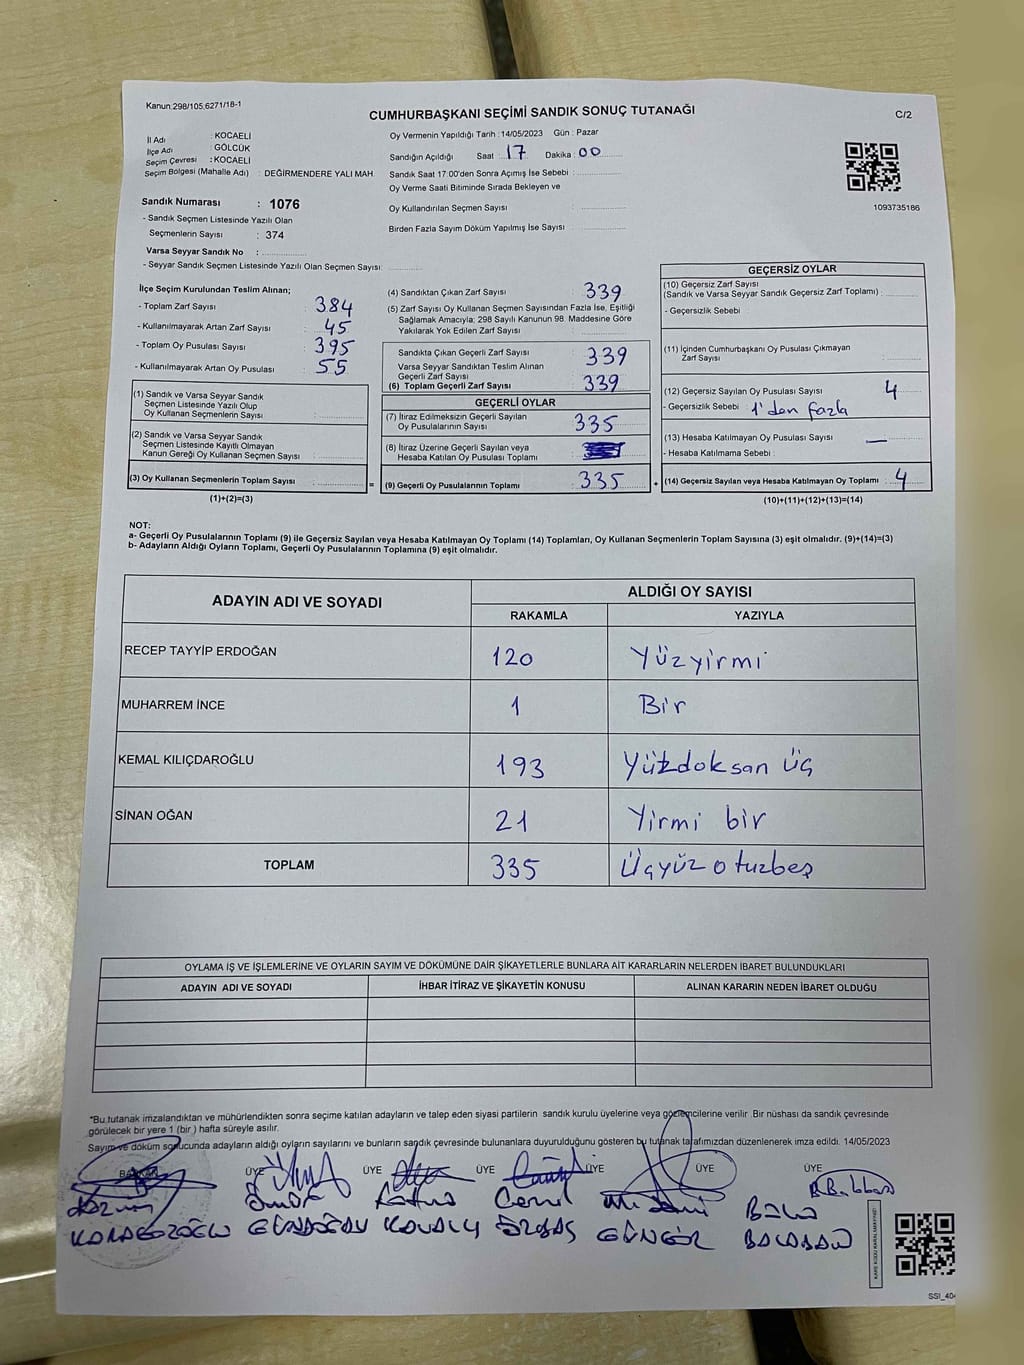 Kanun:298/105,6271/18-1
CUMHURBAŞKANI SEÇİMİ SANDIK SONUÇ TUTANAĞI
C/2
İl Adı : KOCAELİ
İlçe Adı : GÖLCÜK
Seçim Çevresi : KOCAELİ
Seçim Bölgesi (Mahalle Adı) : DEĞİRMENDERE YALI MAH.
Oy Vermenin Yapıldığı Tarih : 14/05/2023 Gün : Pazar
Sandığın Açıldığı Saat : 17 Dakika : 00
Sandık Saat 17:00'den Sonra Açımış İse Sebebi :
Oy Verme Saati Bitiminde Sırada Bekleyen ve
Oy Kullandırılan Seçmen Sayısı :
Birden Fazla Sayım Döküm Yapılmış İse Sayısı :
1093735186
Sandık Numarası : 1076
- Sandık Seçmen Listesinde Yazılı Olan
Seçmenlerin Sayısı : 374
Varsa Seyyar Sandık No :
- Seyyar Sandık Seçmen Listesinde Yazılı Olan Seçmen Sayısı:
İlçe Seçim Kurulundan Teslim Alınan;
- Toplam Zarf Sayısı : 384
- Kullanılmayarak Artan Zarf Sayısı : 45
- Toplam Oy Pusulası Sayısı : 395
- Kullanılmayarak Artan Oy Pusulası : 55
(1) Sandık ve Varsa Seyyar Sandık
Seçmen Listesinde Yazılı Olup
Oy Kullanan Seçmenlerin Sayısı :
(2) Sandık ve Varsa Seyyar Sandık
Seçmen Listesinde Kayıtlı Olmayan
Kanun Gereği Oy Kullanan Seçmen Sayısı :
(3) Oy Kullanan Seçmenlerin Toplam Sayısı :
(1)+(2)=(3)
(4) Sandıktan Çıkan Zarf Sayısı : 339
(5) Zarf Sayısı Oy Kullanan Seçmen Sayısından Fazla İse, Eşitliği
Sağlamak Amacıyla; 298 Sayılı Kanunun 98. Maddesine Göre
Yakılarak Yok Edilen Zarf Sayısı :
Sandıkta Çıkan Geçerli Zarf Sayısı : 339
Varsa Seyyar Sandıktan Teslim Alınan
Geçerli Zarf Sayısı :
(6) Toplam Geçerli Zarf Sayısı : 339
GEÇERLİ OYLAR
(7) İtiraz Edilmeksizin Geçerli Sayılan
Oy Pusulalarının Sayısı : 335
(8) İtiraz Üzerine Geçerli Sayılan veya
Hesaba Katılan Oy Pusulası Toplamı :
= (9) Geçerli Oy Pusulalarının Toplamı : 335
GEÇERSİZ OYLAR
(10) Geçersiz Zarf Sayısı
(Sandık ve Varsa Seyyar Sandık Geçersiz Zarf Toplamı) :
- Geçersizlik Sebebi :
(11) İçinden Cumhurbaşkanı Oy Pusulası Çıkmayan
Zarf Sayısı :
(12) Geçersiz Sayılan Oy Pusulası Sayısı : 4
- Geçersizlik Sebebi : 1'den fazla
(13) Hesaba Katılmayan Oy Pusulası Sayısı : —
- Hesaba Katılmama Sebebi :
+ (14) Geçersiz Sayılan veya Hesaba Katılmayan Oy Toplamı : 4
(10)+(11)+(12)+(13)=(14)
NOT:
a- Geçerli Oy Pusulalarının Toplamı (9) ile Geçersiz Sayılan veya Hesaba Katılmayan Oy Toplamı (14) Toplamları, Oy Kullanan Seçmenlerin Toplam Sayısına (3) eşit olmalıdır. (9)+(14)=(3)
b- Adayların Aldığı Oyların Toplamı, Geçerli Oy Pusulalarının Toplamına (9) eşit olmalıdır.
ADAYIN ADI VE SOYADI ALDIĞI OY SAYISI
RAKAMLA YAZIYLA
RECEP TAYYİP ERDOĞAN 120 Yüzyirmi
MUHARREM İNCE 1 Bir
KEMAL KILIÇDAROĞLU 193 Yüzdoksan üç
SİNAN OĞAN 21 Yirmi bir
TOPLAM 335 Üçyüz otuzbeş
OYLAMA İŞ VE İŞLEMLERİNE VE OYLARIN SAYIM VE DÖKÜMÜNE DAİR ŞİKAYETLERLE BUNLARA AİT KARARLARIN NELERDEN İBARET BULUNDUKLARI
ADAYIN ADI VE SOYADI İHBAR İTİRAZ VE ŞİKAYETİN KONUSU ALINAN KARARIN NEDEN İBARET OLDUĞU
*Bu tutanak imzalandıktan ve mühürlendikten sonra seçime katılan adayların ve talep eden siyasi partilerin sandık kurulu üyelerine veya gözlemcilerine verilir. Bir nüshası da sandık çevresinde
görülecek bir yere 1 (bir) hafta süreyle asılır.
Sayım ve döküm sonucunda adayların aldığı oyların sayılarını ve bunların sandık çevresinde bulunanlara duyurulduğunu gösteren bu tutanak tarafımızdan düzenlenerek imza edildi. 14/05/2023
BAŞKAN ÜYE ÜYE ÜYE ÜYE ÜYE ÜYE
KARAGÖZOĞLU GÜNDOĞDU GÜNGÖR BALABAN
SSI_404